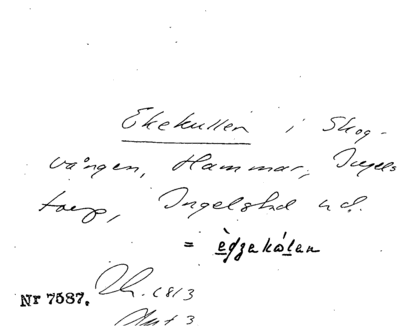 Ekekullen i Skog-
vången, Hammar, Ingels
torp, Ingelstad n.d.
= ègzekálen
Nr 7587. 1813